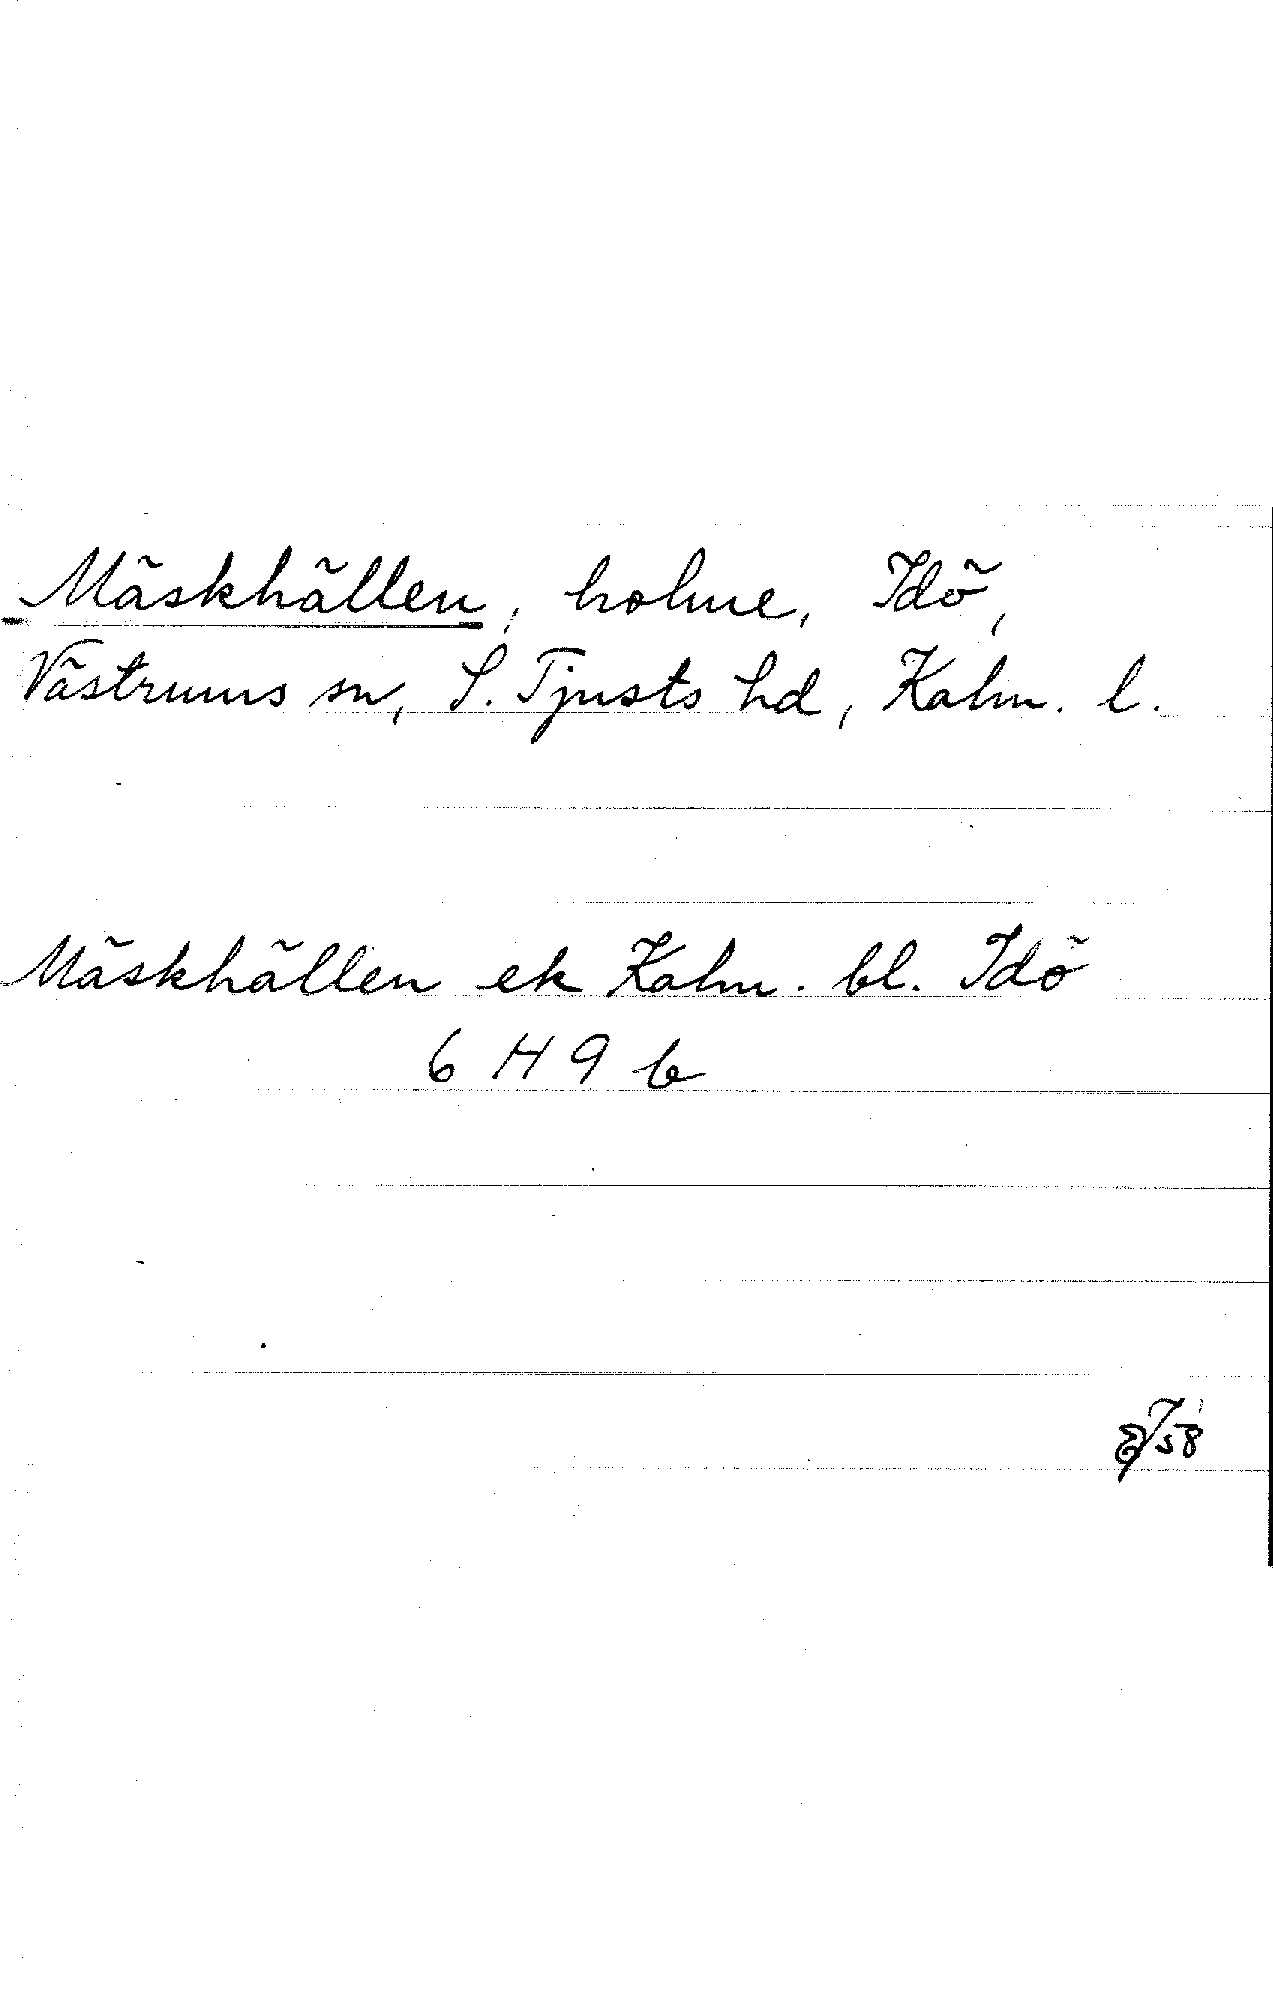 Mäskhällen, holme, Idö,
Västrums sn, S. Tjusts hd, Kalm. l.
Mäskhällen ek Kalm. bl. Idö
6 H 9 b
58